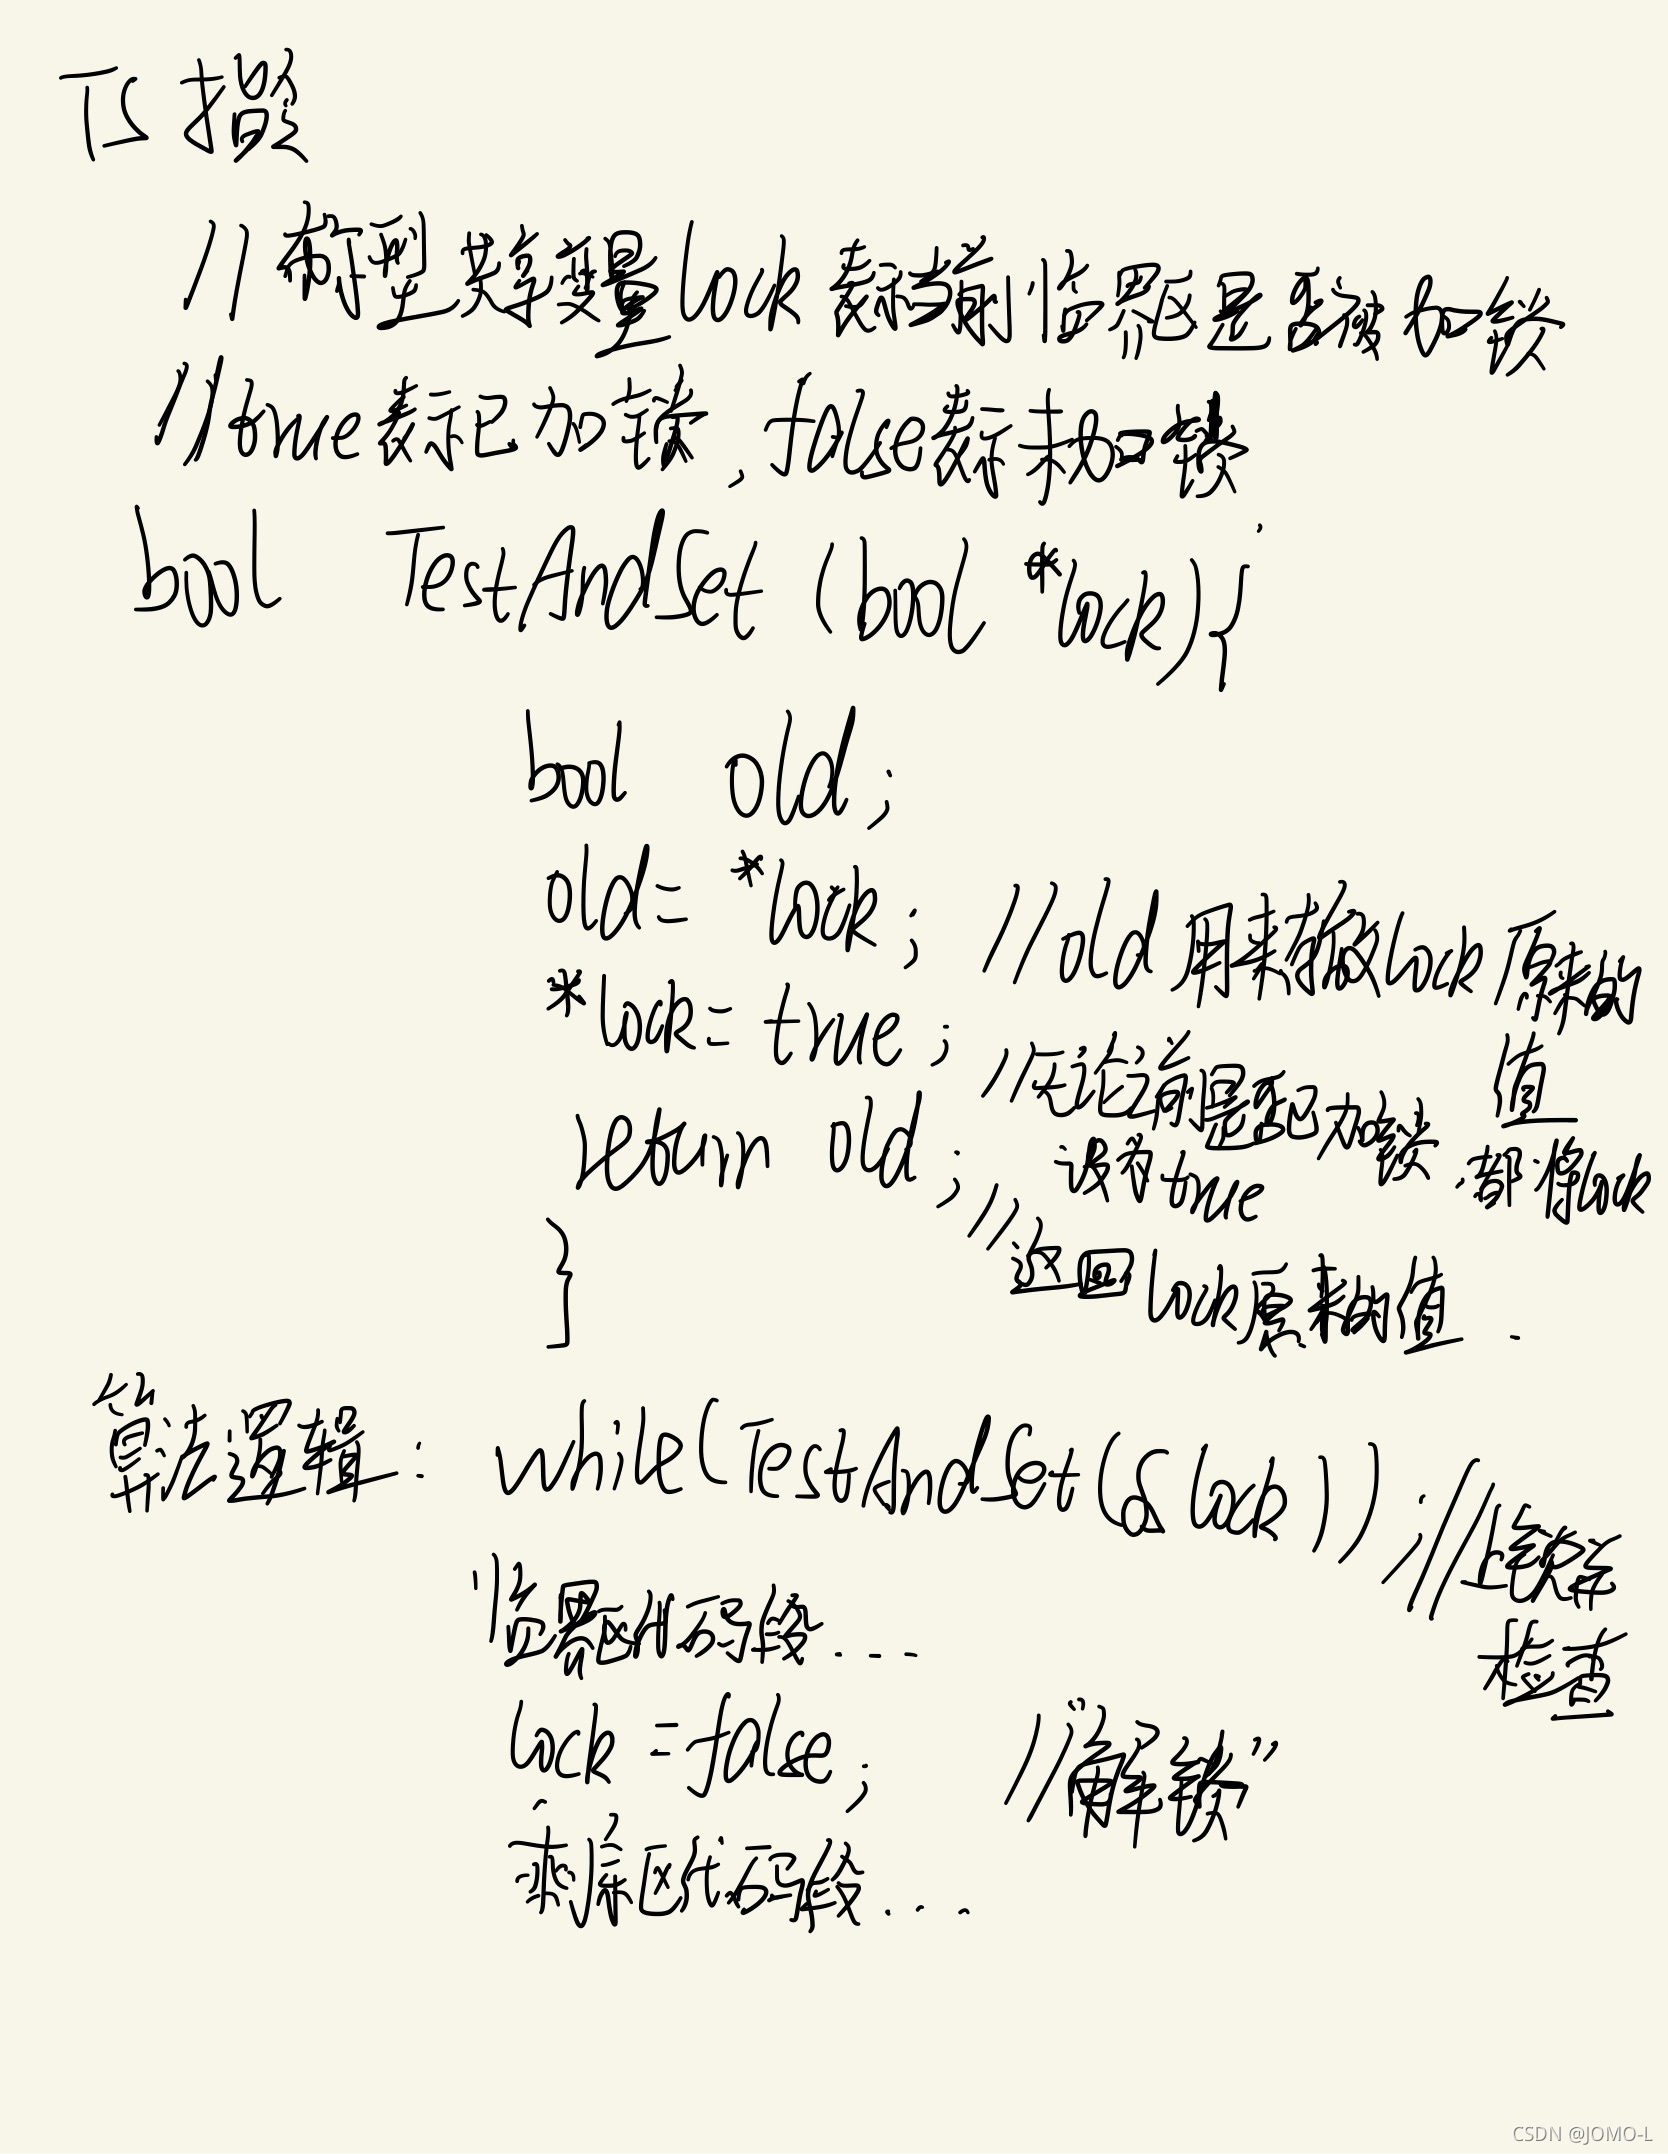 TS 指令
//布尔型共享变量lock表示当前临界区是否被加锁
//true表示已加锁,false表示未加锁
bool TestAndSet (bool *lock){
bool old;
old= *lock; //old用来存放lock原来的值
*lock= true; //无论之前是否已加锁,都将lock设为true
return old; //返回lock原来的值.
}
算法逻辑: while(TestAndSet(&lock)); //上锁并检查
临界区代码段...
lock =false; //"解锁"
剩余区代码段...
CSDN @JOMO-L